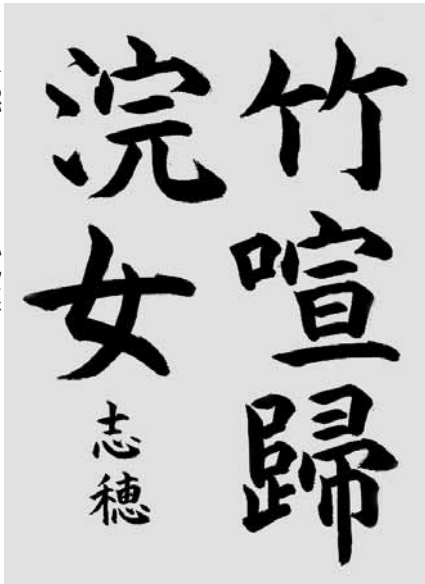 竹喧歸
浣女
志穂